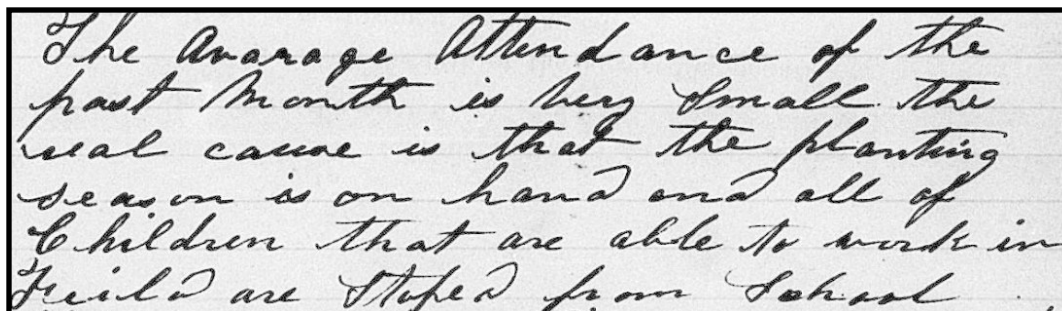 The Avarage Attendance of the
past Month is very Small. the
real cause is that the planting
season is on hand and all of
Children that are able to work in
Feild are Stoped from School